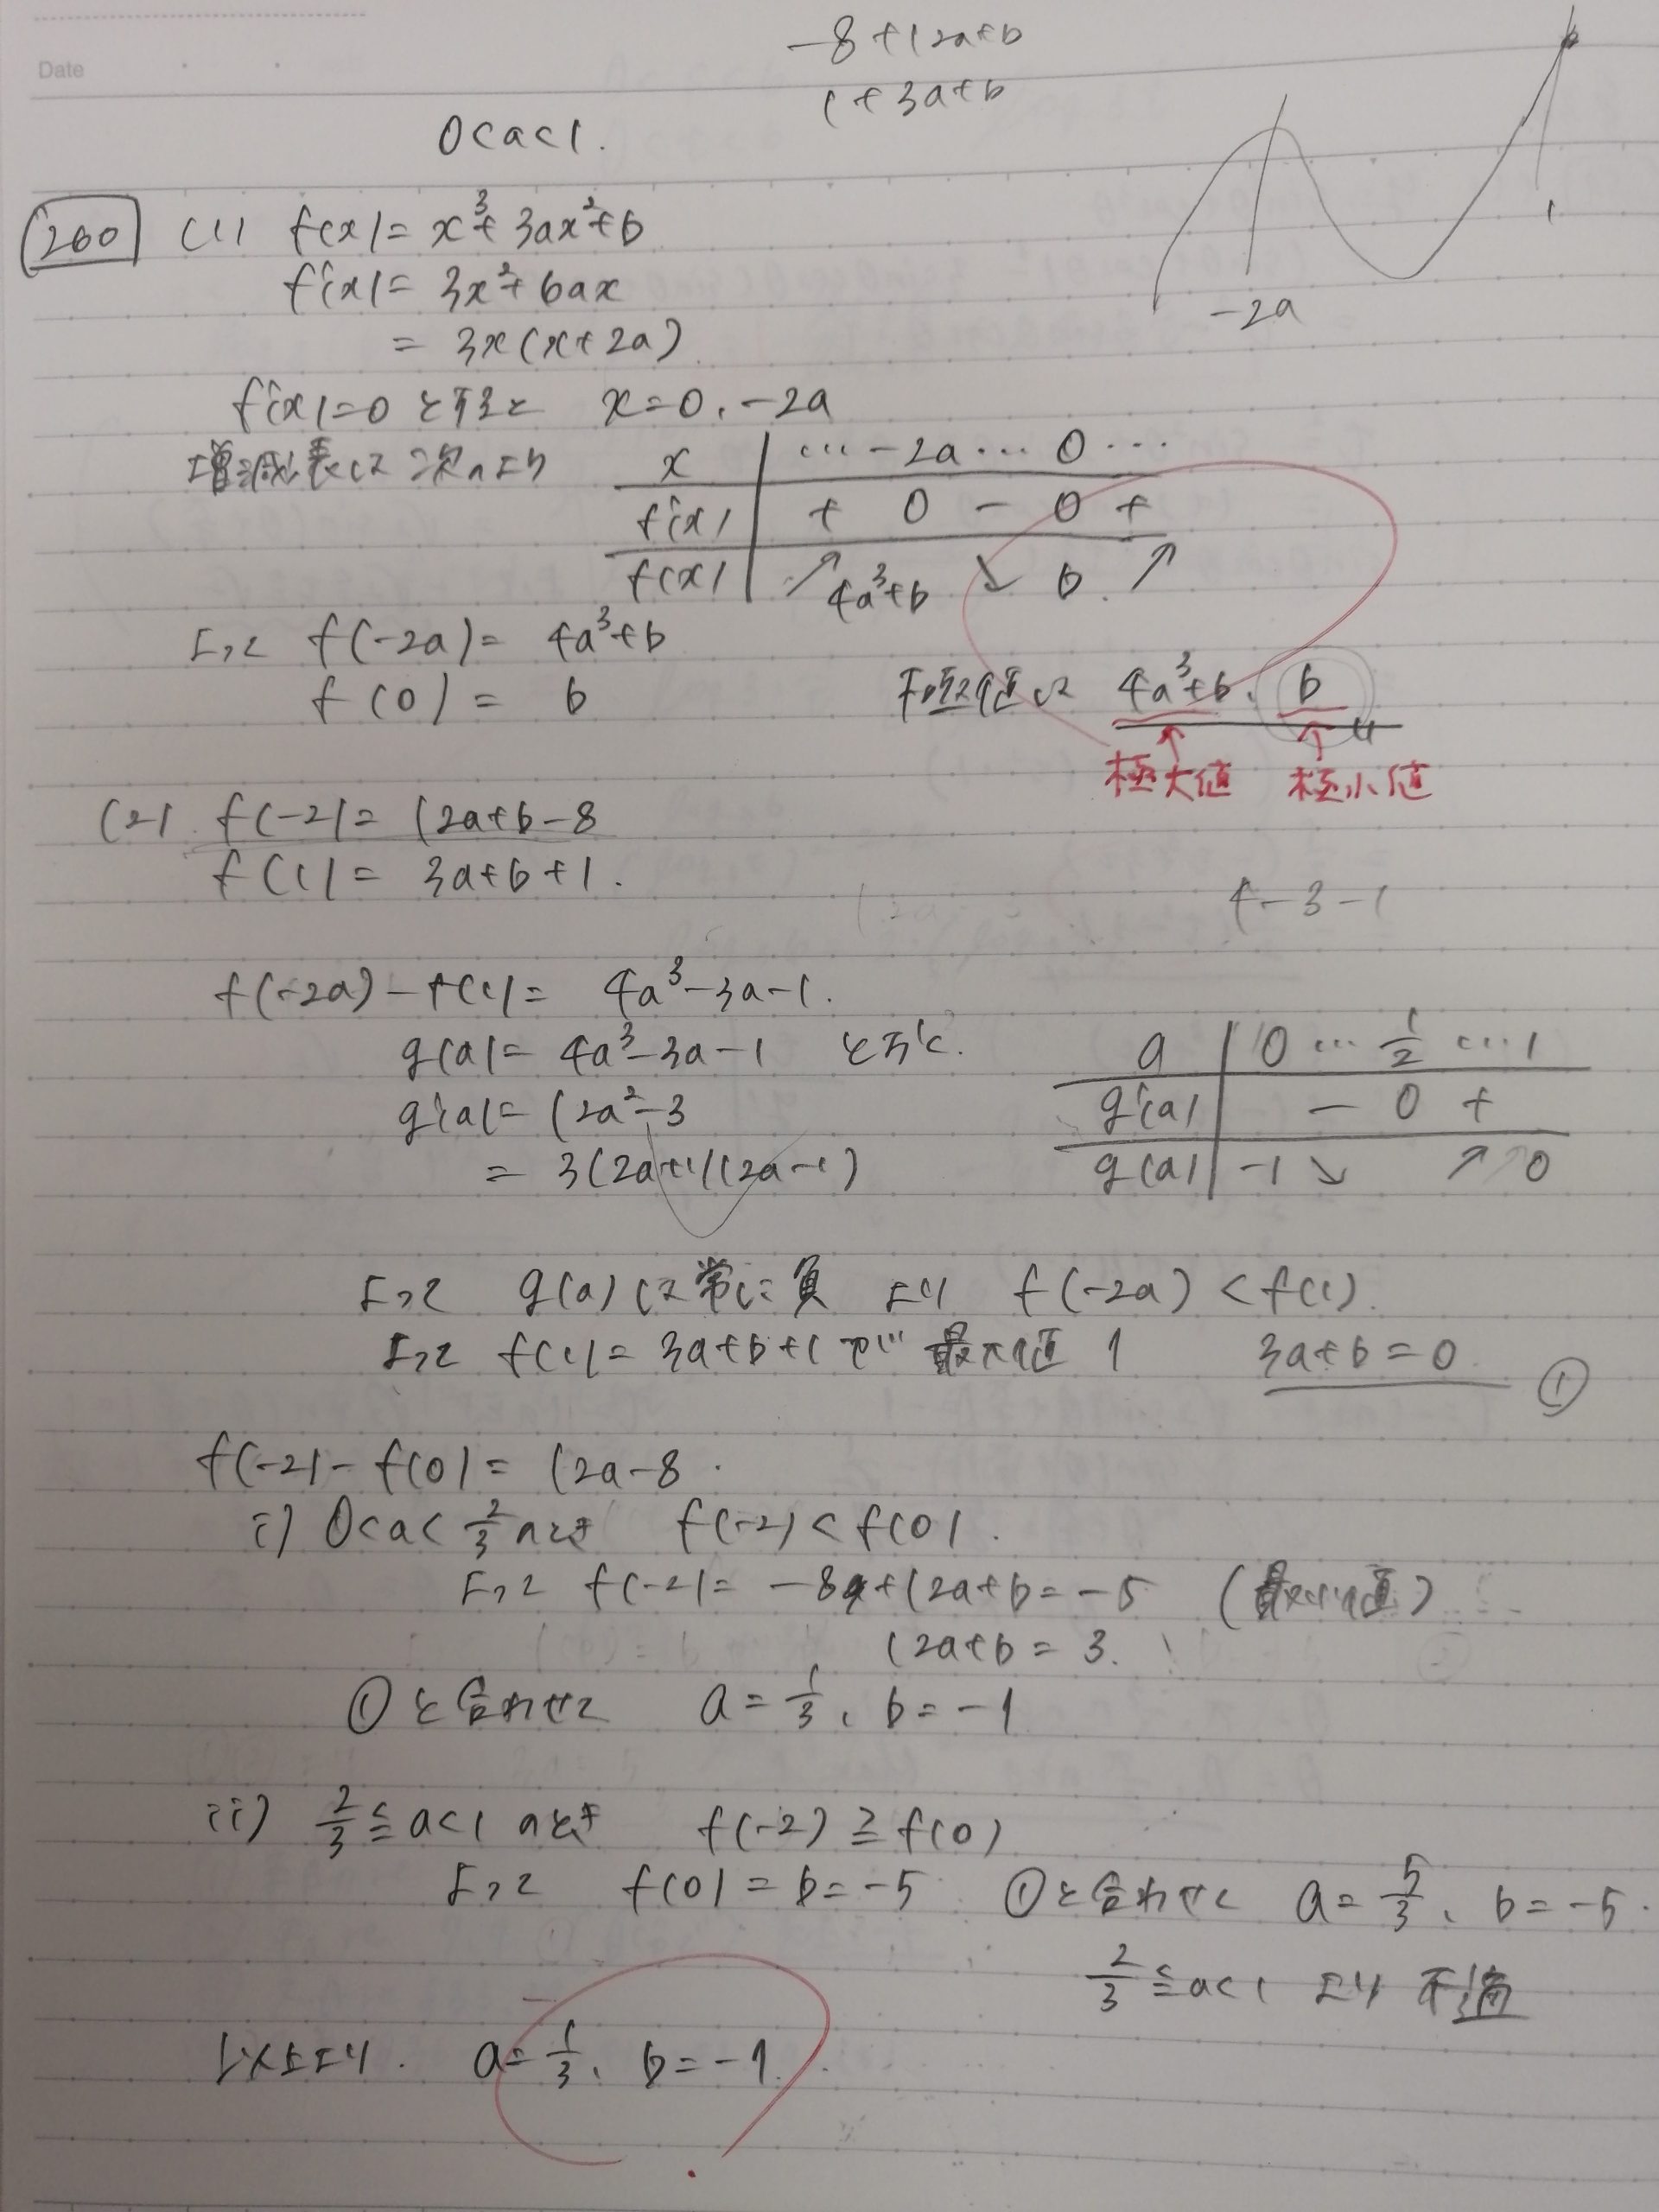 Date
-8+12a+b
1+3a+b
0<a<1.
-2a
1
260 (1) f(x)=x³+3ax²+b
f'(x)=3x²+6ax
=3x(x+2a)
f'(x)=0とすると x=0, -2a
増減表は次のより
x … -2a … 0 …
f'(x) + 0 - 0 +
f(x) ↗ 4a³+b ↘ b ↗
よって f(-2a)=4a³+b
f(0)=b
極値は 4a³+b, b
極大値 極小値
(2) f(-2)=12a+b-8
f(1)=3a+b+1.
4-3-1
f(-2a)-f(1)=4a³-3a-1.
g(a)=4a³-3a-1 とすると.
g'(a)=12a²-3
=3(2a+1)(2a-1)
a 0 … 1/2 … 1
g'(a) - 0 +
g(a) -1 ↘ ↗ 0
よって g(a)は常に負 より f(-2a)<f(1).
よって f(1)=3a+b+1で 最大値 1 3a+b=0 ①
f(-2)-f(0)=12a-8.
i) 0<a<2/3のとき f(-2)<f(0).
よって f(-2)=-8+12a+b=-5 (最小値)
12a+b=3.
①と合わせて a=1/3, b=-1
ii) 2/3≦a<1 のとき f(-2)≧f(0)
よって f(0)=b=-5 ①と合わせて a=5/3, b=-5.
2/3≦a<1 より 不適
以上より. a=1/3, b=-1.